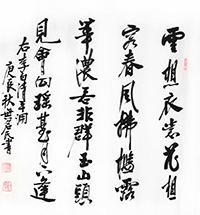 雲想衣裳花想
容春風拂檻露
華濃若非群玉山頭
見會向瑤臺月下逢
右李白清平調
庚辰秋書